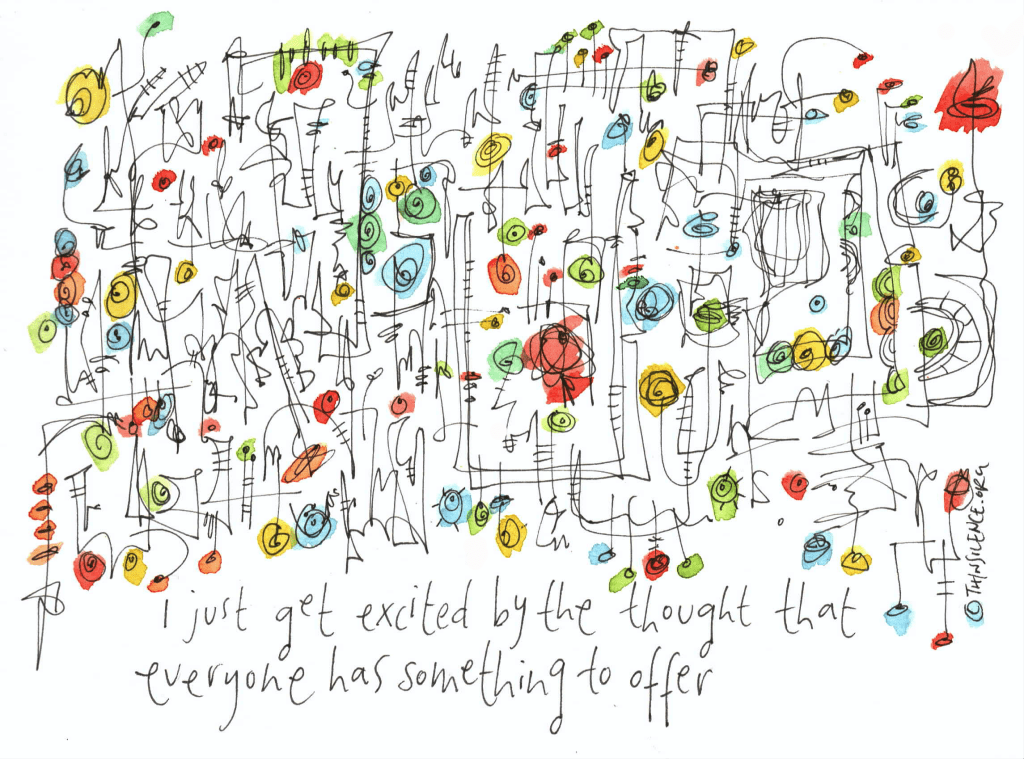 I just get excited by the thought that
everyone has something to offer
© THINSILENCE.ORG